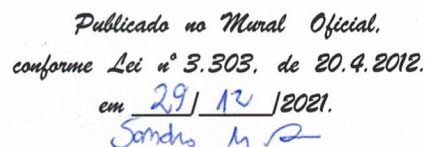 Publicado no Mural Oficial,
conforme Lei nº 3.303, de 20.4.2012.
em 29/ 12 /2021.
Sandro